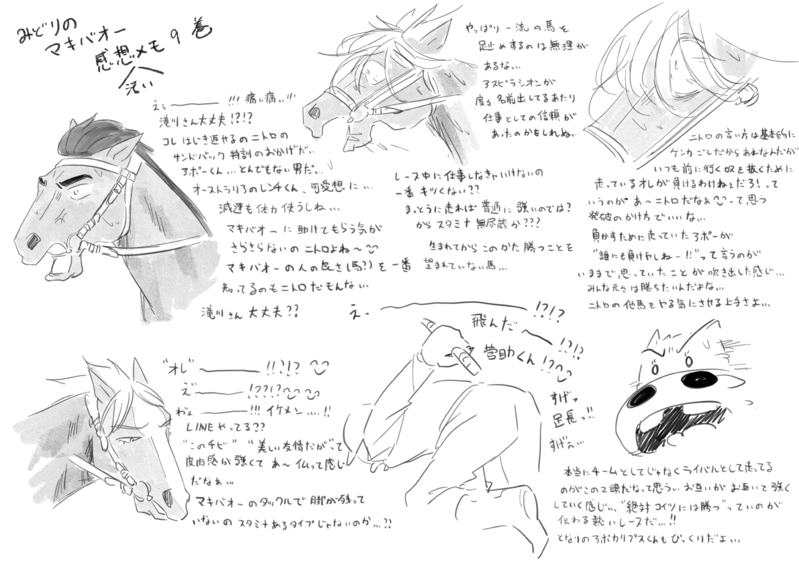 みどりの
マキバオー
感想メモ 9巻
汚い
えぇ———!!! 痛い痛い!!!
滝川さん大丈夫!?!?
コレはじき返せるのニトロの
サンドバック特訓のおかげだ…
アポーくん…とんでもない男だ…
オーストラリアのレンチくん、可愛想に…
減速も体力使うしね…
マキバオーに助けてもらう気が
さらさらないのニトロよね〜
マキバオーの人の良さ(馬?)を一番
知ってるのもニトロだもんな…
滝川さん大丈夫??
やっぱり一流の馬を
足止めするのは無理が
あるな…
アスピラシオンが
度々名前出してるあたり
仕事としての信頼が
あったのかもしれぬ…
レース中に仕事しなきゃいけないの
一番キツくない??
まっとうに走れば普通に強いのでは?
からスタミナ無尽蔵か???
生まれてからこのかた勝つことを
望まれていない馬…
ニトロの言い方は基本的に
ケンカごしだからあれなんだが
いつも前に行く奴を抜くために
走っているオレが負けるわけねぇだろ!って
いうのが あ〜ニトロだなぁって思う
発破のかけ方でいいな…
負かすために走っていたアポーが
"誰にも負けやしねー!!"って言うのが
いままで思っていたことが吹き出した感じ…
みんな元々は勝ちたいんだよな…
ニトロの他馬をやる気にさせる上手さよ…
"オレ"———!!?!?
え"———!??!?
わぁ———!!! イケメン…!!
LINEやってる??
"このチビ""美しい友情だが"って
皮肉感が強くて あ〜仏って感じ
だなぁ…
マキバオーのタックルで脚が残って
いないのスタミナあるタイプじゃないのか…??
え。———!?!?
飛んだ———!?!?
菅助くん!?!?
すげっ
足長っ!!
すげぇ…
本当にチームとしてじゃなくライバルとして走ってる
のがこの2頭だなって思う… お互いがお互いで強く
していく感じ… "絶対コイツには勝つ"っていのが
伝わる熱いレースだ…!!
となりのアポカリプスくんもびっくりだよ…